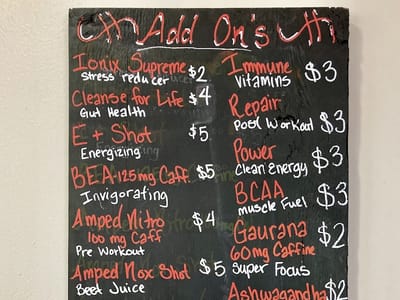 Add On's
Ionix Supreme $2
Stress reducer
Cleanse for Life $4
Gut Health
E + Shot $5
Energizing
BEA-125mg Caff. $5
Invigorating
Amped Nitro $4
100 mg Caff
Pre Workout
Amped Nox Shot $5
Beet Juice
Immune $3
Vitamins
Repair $3
Post Workout
Power $3
Clean Energy
BCAA $3
Muscle Fuel
Gaurana $2
60mg Caffine
Super Focus
Ashwagandha $2